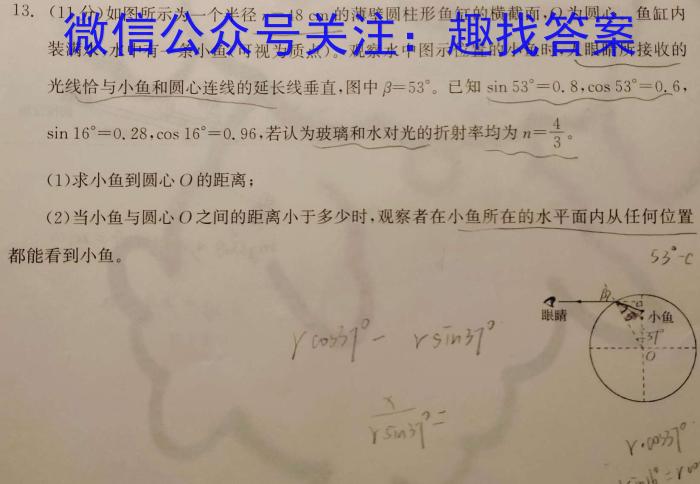 13. (11分)如图所示为一个半径 r=48 cm的薄壁圆柱形鱼缸的横截面,O为圆心,鱼缸内
微信公众号关注：趣找答案
装满水,水中有一条小鱼(可视为质点)。观察水中图示位置的小鱼时,人眼睛所接收的
光线恰与小鱼和圆心连线的延长线垂直,图中β=53°。已知 sin 53°=0.8,cos 53°=0.6,
sin 16°=0.28,cos 16°=0.96,若认为玻璃和水对光的折射率均为 n=4/3。
(1)求小鱼到圆心 O 的距离;
(2)当小鱼与圆心 O 之间的距离小于多少时,观察者在小鱼所在的水平面内从任何位置
都能看到小鱼。
53°-C
β
眼睛
小鱼
37°
O
r cos37° - r sin37°
x/r sin37° =
r·cos37°